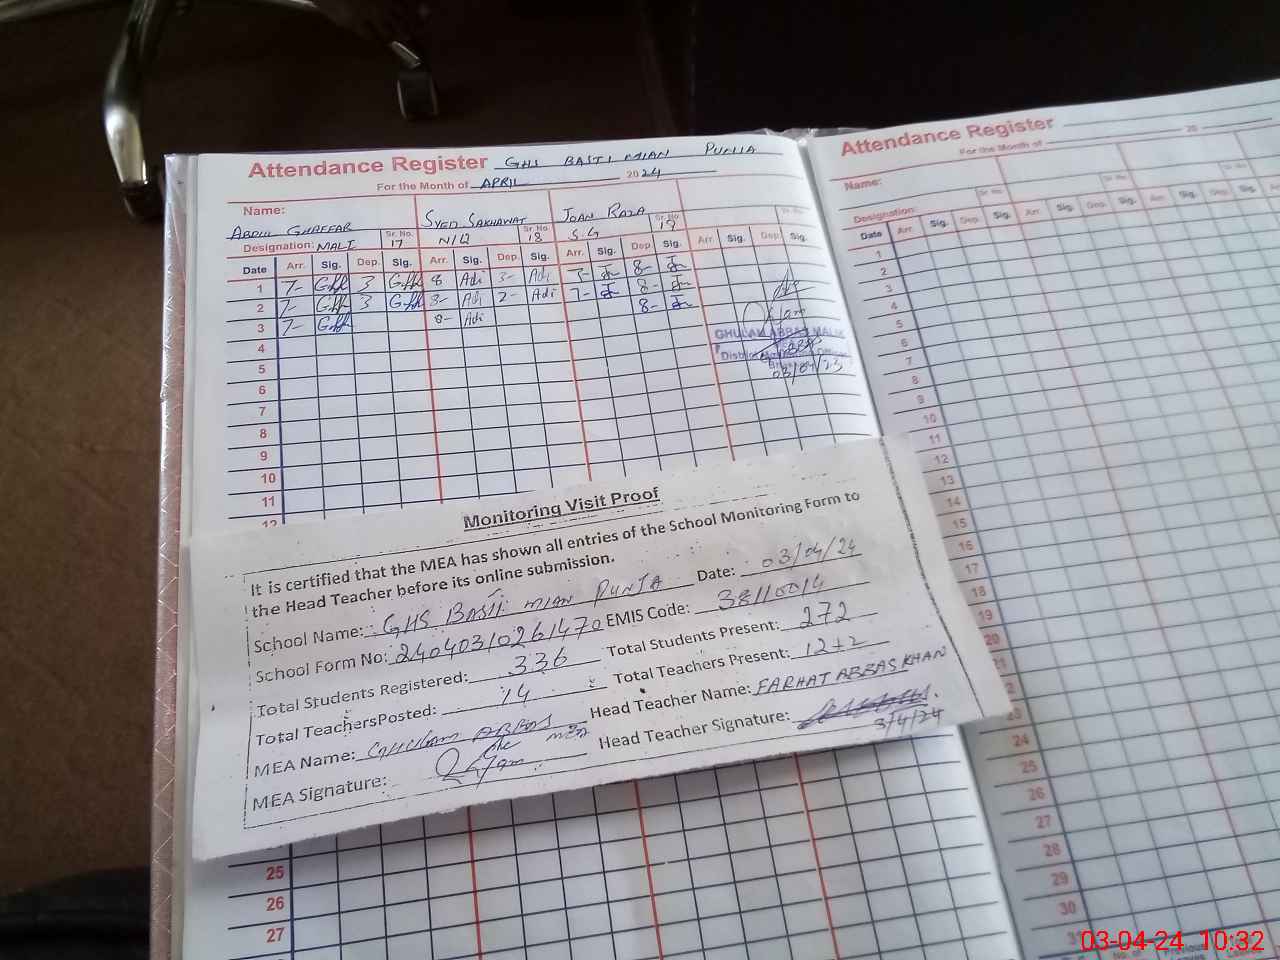 Attendance Register GHS BASTI MIAN PUNJA
For the Month of APRIL 2024
Name:
ABDUL GHAFFAR SYED SAKHAWAT JOAN RAZA
Sr. No. Sr. No. Sr. No. Sr. No.
Designation: MALI 17 N/Q 18 S.G 19
Date Arr. Sig. Dep. Sig. Arr. Sig. Dep. Sig. Arr. Sig. Dep. Sig. Arr. Sig. Dep. Sig.
1 7- 3 8 Adi 3- Adi 7- 8-
2 7- 3 8- Adi 2- Adi 7- 8-
3 7- 8- Adi 8-
4
5
6
7
8
9
10
11
12
GHULAM ABBAS MALIK
District
03/04/23
Monitoring Visit Proof
It is certified that the MEA has shown all entries of the School Monitoring Form to
the Head Teacher before its online submission.
School Name: GHS BASTI MIAN PUNJA Date: 03/04/24
School Form No: 24040310261470 EMIS Code: 38110014
Total Students Registered: 336 Total Students Present: 272
Total TeachersPosted: 14 Total Teachers Present: 12+2
MEA Name: GHULAM ABBAS MEA Head Teacher Name: FARHAT ABBAS KHAN
MEA Signature: Head Teacher Signature:
3/4/24
25
26
27
Attendance Register 20
For the Month of
Name:
Sr. No. Sr. No.
Designation:
Date Arr. Sig. Dep. Sig. Arr. Sig. Dep. Sig. Arr. Sig. Dep. Sig.
1
2
3
4
5
6
7
8
9
10
11
12
13
14
15
16
17
18
19
20
21
23
24
25
26
27
28
29
30
31
No. of Previous
03-04-24 10:32